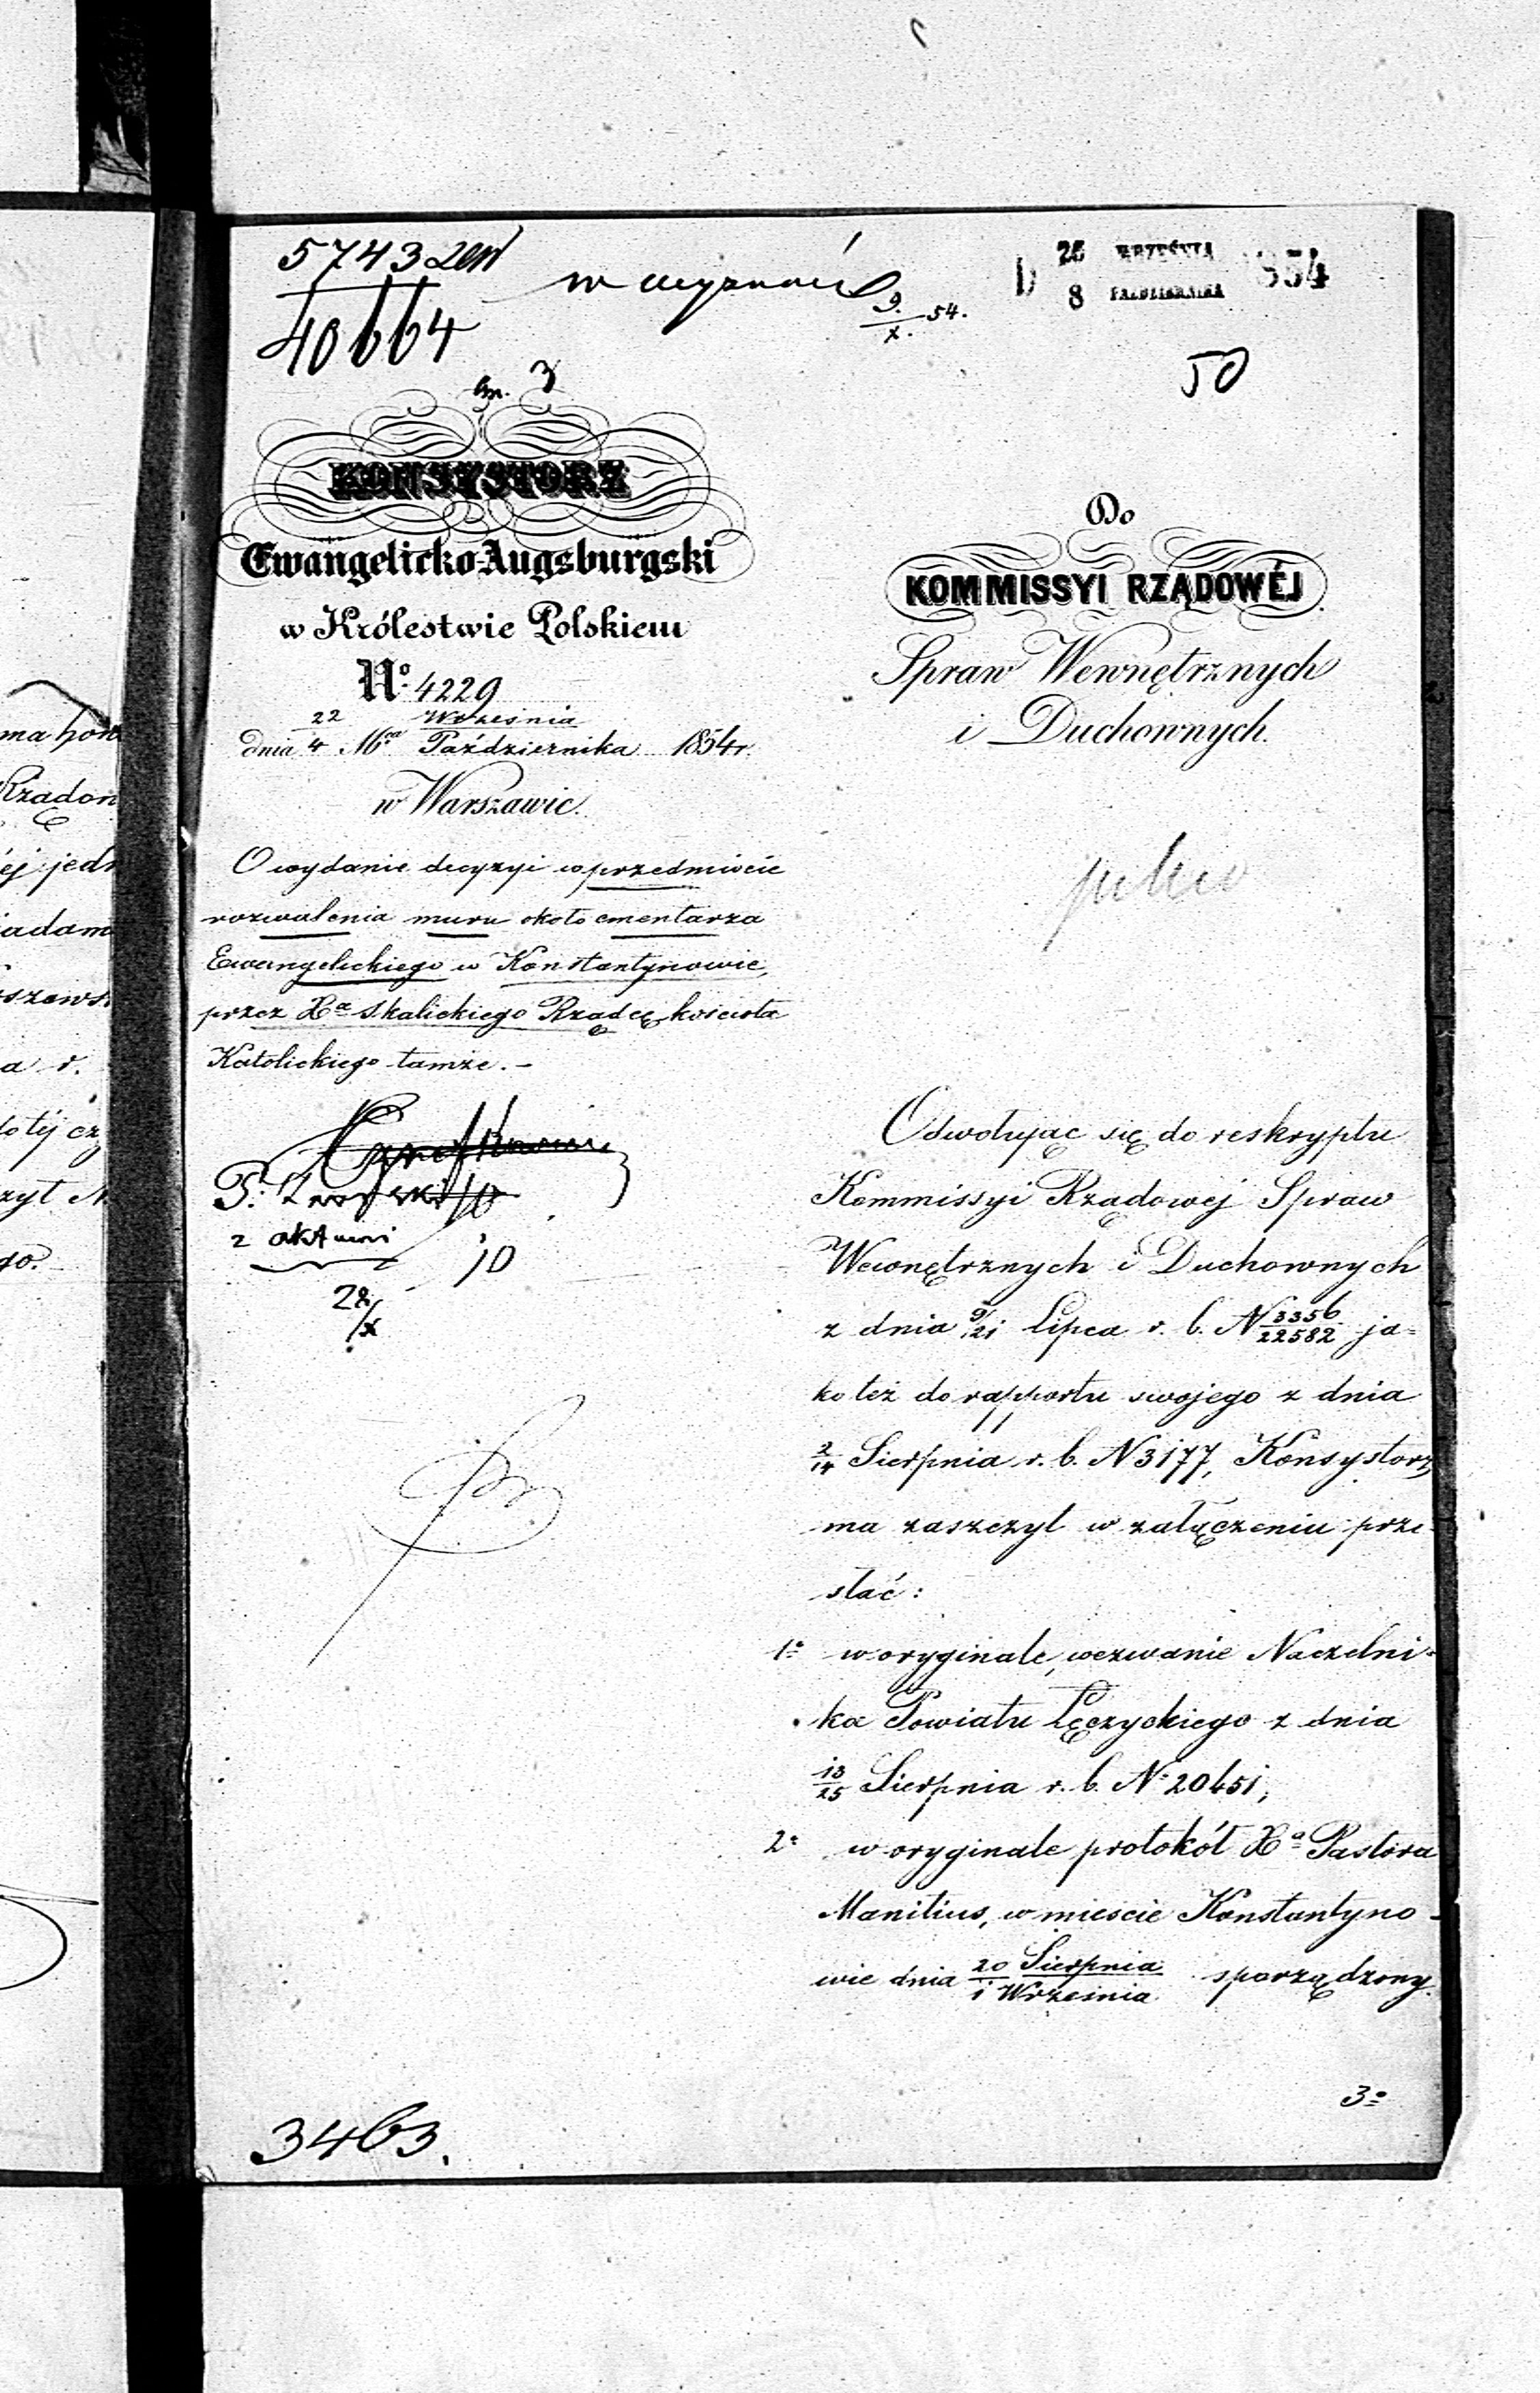 5743
40664
9/X. 54.
D 26 WRZEŚNIA 1854
8 PAŹDZIERNIKA
50
KONSYSTORZ
Ewangelicko-Augsburgski
w Królestwie Polskiem
No. 4229
22 Września
dnia 4 Mca Października 1854 r.
w Warszawie.
O wydanie decyzyi w przedmiocie
rozwalenia muru około cmentarza
Ewangelickiego w Konstantynowie,
przez Xa Skalickiego Rządcę kościoła
Katolickiego tamże. -
z aktami
10
28/X
Do
KOMMISSYI RZĄDOWÉJ
Spraw Wewnętrznych
i Duchownych.
Odwołując się do reskryptu
Kommissyi Rządowej Spraw
Wewnętrznych i Duchownych
z dnia 9/21 Lipca r. b. N 3356/22582 ja=
ko też do rapportu swojego z dnia
2/14 Sierpnia r. b. N 3177, Konsystorz
ma zaszczyt w załączeniu prze-
słać:
1o w oryginale, wezwanie Naczelni=
ka Powiatu Łęczyckiego z dnia
13/25 Sierpnia r. b. No 20451,
2o w oryginale protokół Xa Pastora
Manitius, w mieście Konstantyno-
wie dnia 20 Sierpnia/1 Września sporządzony.
3o
3463.